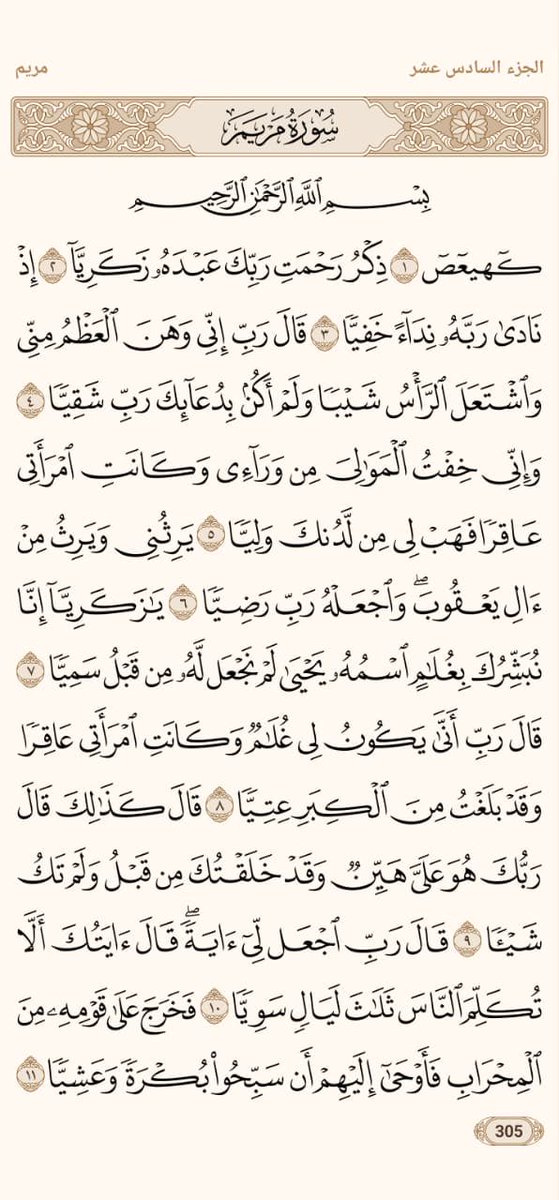 الجزء السادس عشر مريم
سُورَةُ مَرْيَمَ
بِسْمِ ٱللَّهِ ٱلرَّحْمَٰنِ ٱلرَّحِيمِ
كٓهيعٓصٓ ١ ذِكْرُ رَحْمَتِ رَبِّكَ عَبْدَهُۥ زَكَرِيَّآ ٢ إِذْ
نَادَىٰ رَبَّهُۥ نِدَآءً خَفِيًّا ٣ قَالَ رَبِّ إِنِّى وَهَنَ ٱلْعَظْمُ مِنِّى
وَٱشْتَعَلَ ٱلرَّأْسُ شَيْبًا وَلَمْ أَكُنۢ بِدُعَآئِكَ رَبِّ شَقِيًّا ٤
وَإِنِّى خِفْتُ ٱلْمَوَٰلِىَ مِن وَرَآءِى وَكَانَتِ ٱمْرَأَتِى
عَاقِرًا فَهَبْ لِى مِن لَّدُنكَ وَلِيًّا ٥ يَرِثُنِى وَيَرِثُ مِنْ
ءَالِ يَعْقُوبَۖ وَٱجْعَلْهُ رَبِّ رَضِيًّا ٦ يَٰزَكَرِيَّآ إِنَّا
نُبَشِّرُكَ بِغُلَٰمٍ ٱسْمُهُۥ يَحْيَىٰ لَمْ نَجْعَل لَّهُۥ مِن قَبْلُ سَمِيًّا ٧
قَالَ رَبِّ أَنَّىٰ يَكُونُ لِى غُلَٰمٌ وَكَانَتِ ٱمْرَأَتِى عَاقِرًا
وَقَدْ بَلَغْتُ مِنَ ٱلْكِبَرِ عِتِيًّا ٨ قَالَ كَذَٰلِكَ قَالَ
رَبُّكَ هُوَ عَلَىَّ هَيِّنٌ وَقَدْ خَلَقْتُكَ مِن قَبْلُ وَلَمْ تَكُ
شَيْـًٔا ٩ قَالَ رَبِّ ٱجْعَل لِّىٓ ءَايَةًۖ قَالَ ءَايَتُكَ أَلَّا
تُكَلِّمَ ٱلنَّاسَ ثَلَٰثَ لَيَالٍ سَوِيًّا ١٠ فَخَرَجَ عَلَىٰ قَوْمِهِۦ مِنَ
ٱلْمِحْرَابِ فَأَوْحَىٰٓ إِلَيْهِمْ أَن سَبِّحُوا۟ بُكْرَةً وَعَشِيًّا ١١
305